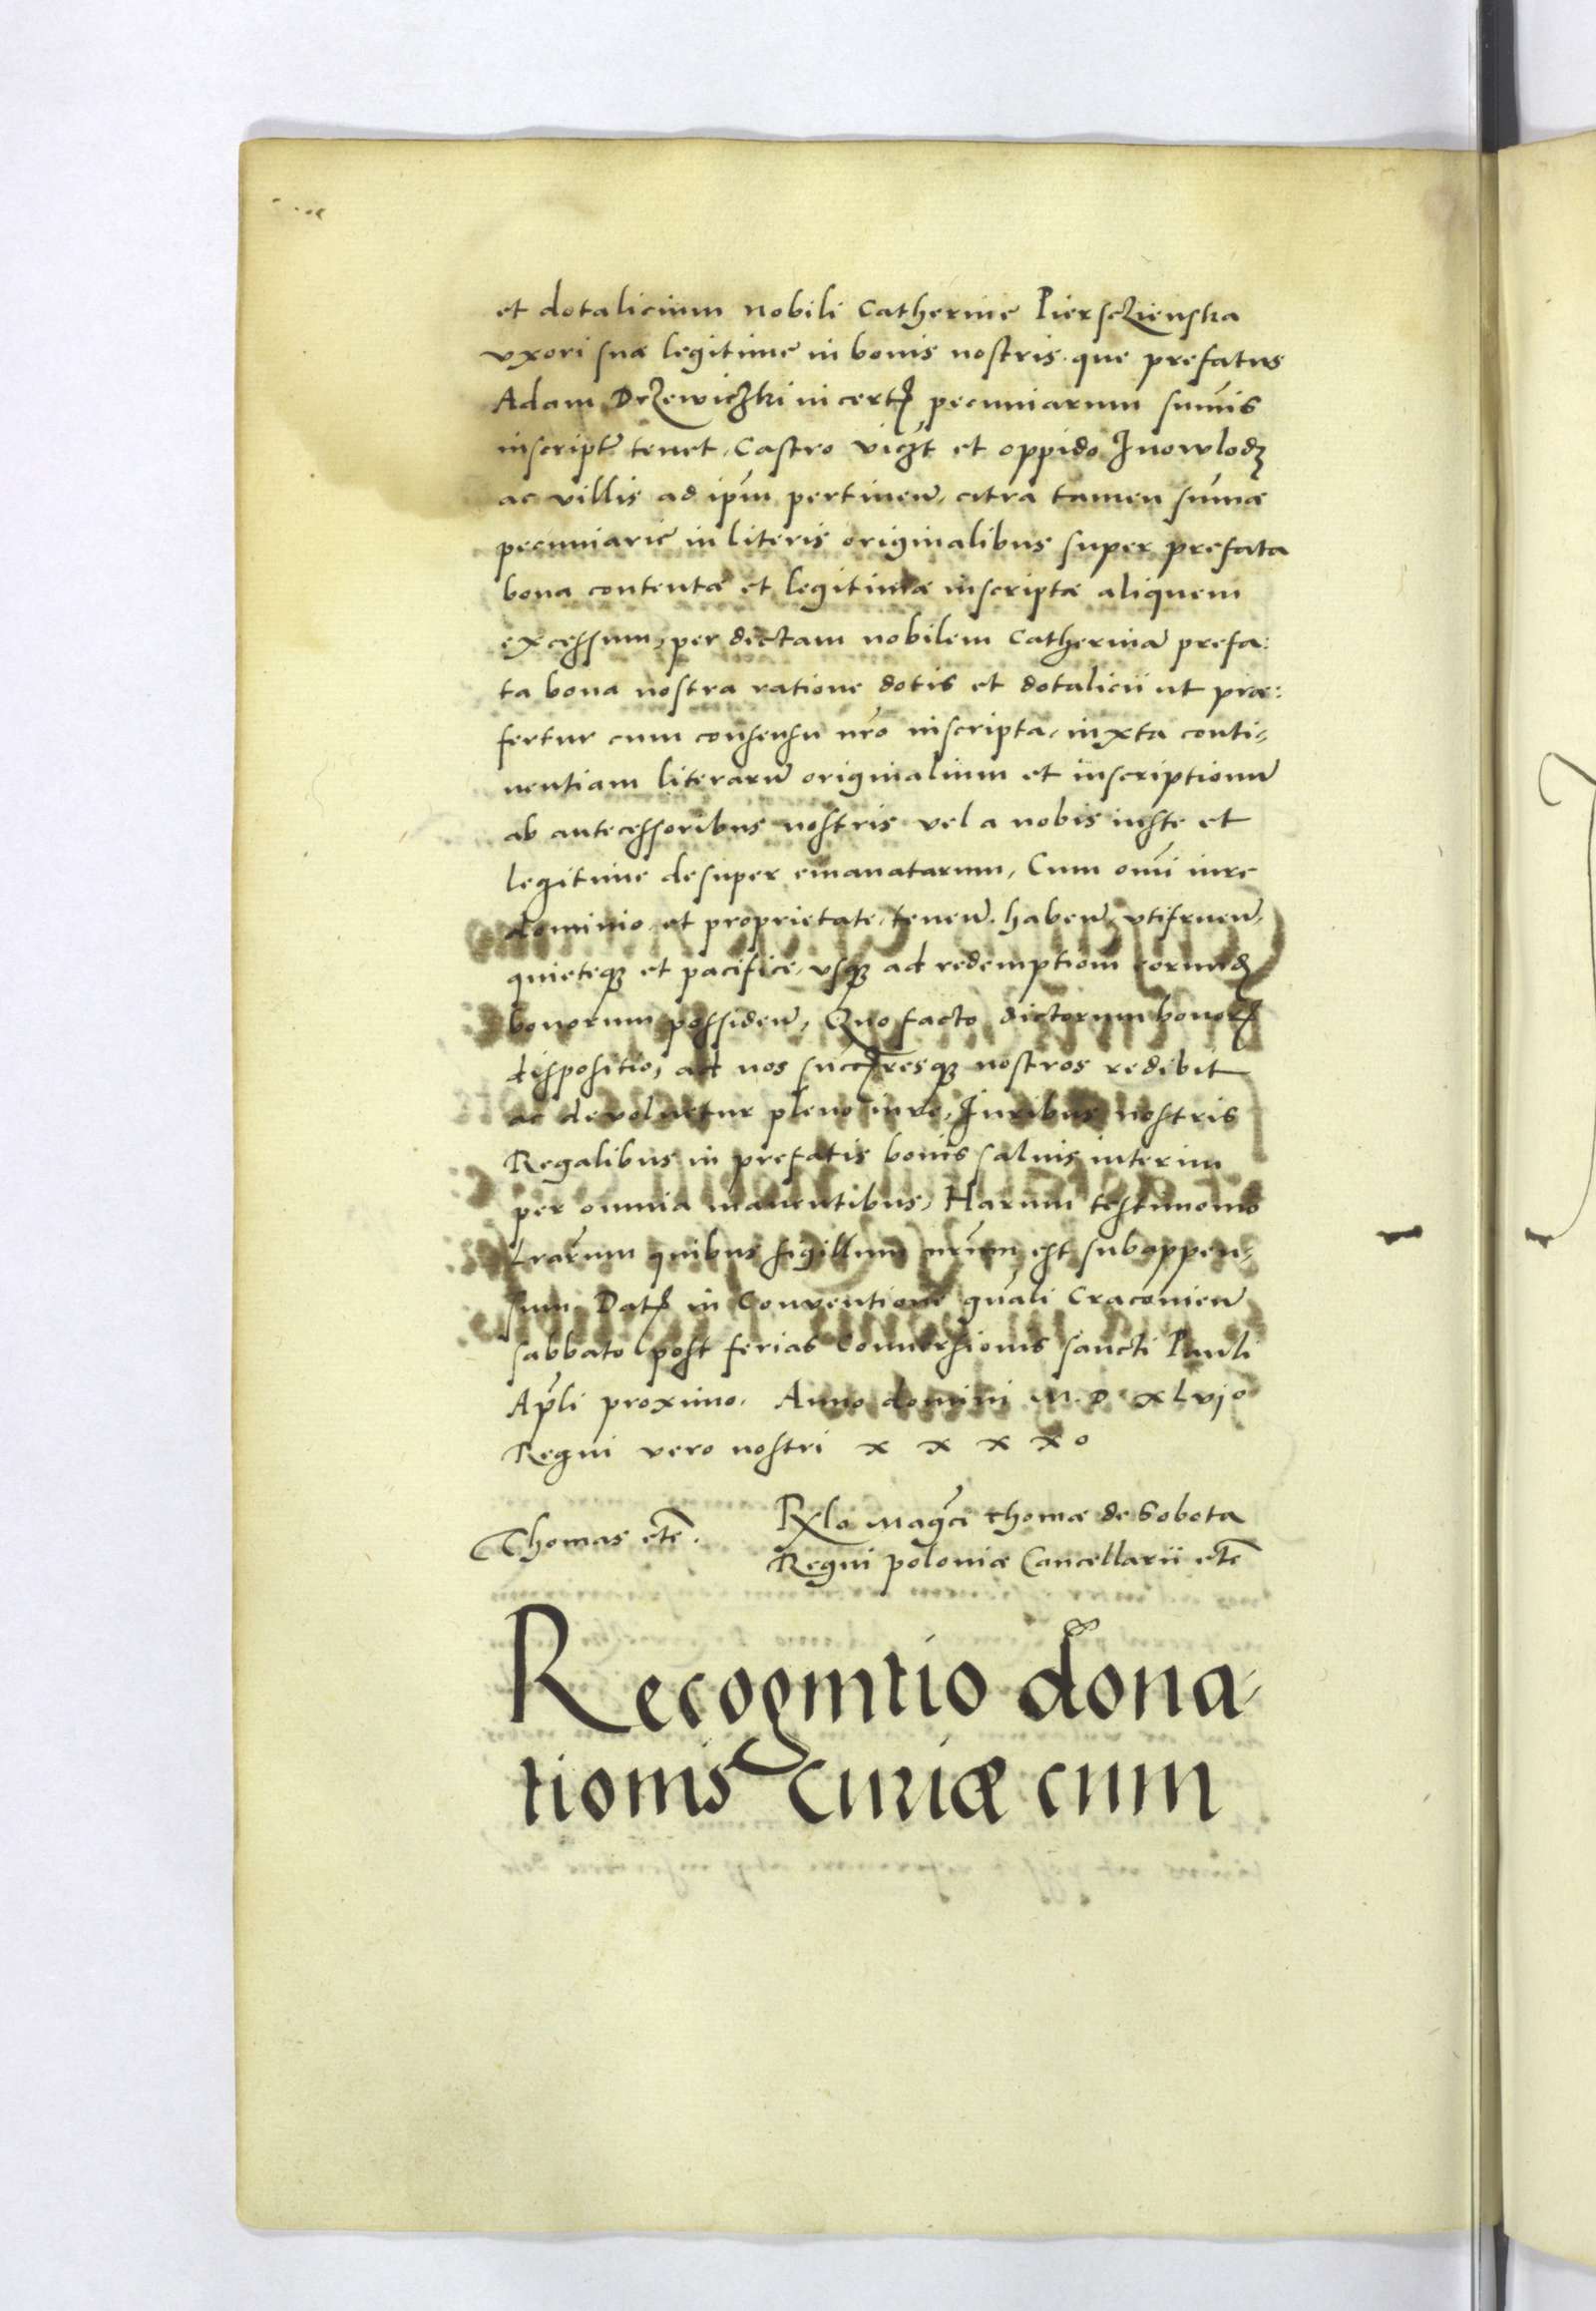 et dotalicium nobili Catherinę Piersczienska
vxori suæ legitimę in bonis nostris que prefatus
Adam Drzewiczki in certꝭ pecuniarum sum̄is
inscript̄ tenet, Castro viczt et oppido Inowlodz
ac villis ad ip̄m pertineñ, citra tamen sum̄æ
pecuniarię in literis originalibus super prefata
bona contentæ et legitimæ inscriptæ aliquem
excessum, per dictam nobilem Catherinā prefa:
ta bona nostra ratione dotis et dotalicii ut præ:
fertur cum consensu nr̄o inscripta, iuxta conti-
nentiam literarū originalium et inscriptionū
ab antecessoribus nostris vel a nobis iuste et
legitime desuper emanatarum, Cum om̄i iure
dominio et proprietate, teneñ. habeñ, vtifrueñ,
quieteq; et pacifice, vsq; ad redemptionem eorumdẽ
bonorum possideñ, Quo facto dictorum bonoꝝ
dispositio, ad nos succ̄resq; nostros redibit
ac devoluetur pleno iure, Iuribus nostris
Regalibus in prefatis bonis saluis interim
per omnia manentibus, Harum testimonio
Lr̄arum quibus sigillum nr̄um est subappen-
sum. Datꝭ in Conventione gn̄ali Cracovieñ
sabbato post ferias Conuersionis sancti Pauli
Ap̄li proximo, Anno domini M. D XLvjo
Regni vero nostri x x x xo
Thomas etc̄.
Rx̄lo Mag̃ci Thomæ de Sobota
Regni poloniæ Cancellarii etc̄
Recognitio dona-
tionis Curiæ cum